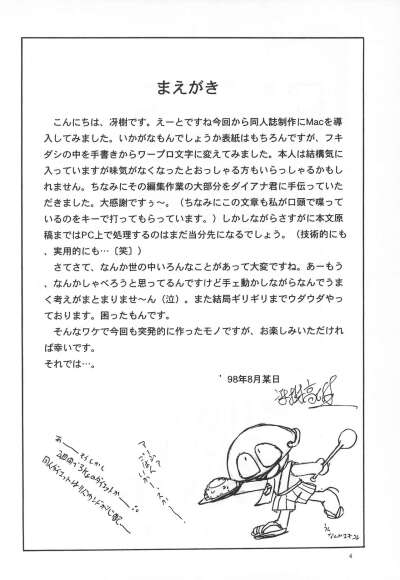 まえがき
こんにちは、冴樹です。えーとですね今回から同人誌制作にMacを導
入してみました。いかがなもんでしょうか表紙はもちろんですが、フキ
ダシの中を手書きからワープロ文字に変えてみました。本人は結構気に
入っていますが味気がなくなったとおっしゃる方もいらっしゃるかもし
れません。ちなみにその編集作業の大部分をダイアナ君に手伝っていた
だきました。大感謝ですぅ〜。（ちなみにこの文章も私が口頭で喋って
いるのをキーで打ってもらっています。）しかしながらさすがに本文原
稿まではPC上で処理するのはまだ当分先になるでしょう。（技術的にも
、実用的にも…〔笑〕）
さてさて、なんか世の中いろんなことがあって大変ですね。あーもう
、なんかしゃべろうと思ってるんですけど手ェ動かしながらなんでうま
く考えがまとまりませ〜ん（泣）。また結局ギリギリまでウダウダやっ
ております。困ったもんです。
そんなワケで今回も突発的に作ったモノですが、お楽しみいただけれ
ば幸いです。
それでは…。
'98年8月某日
4